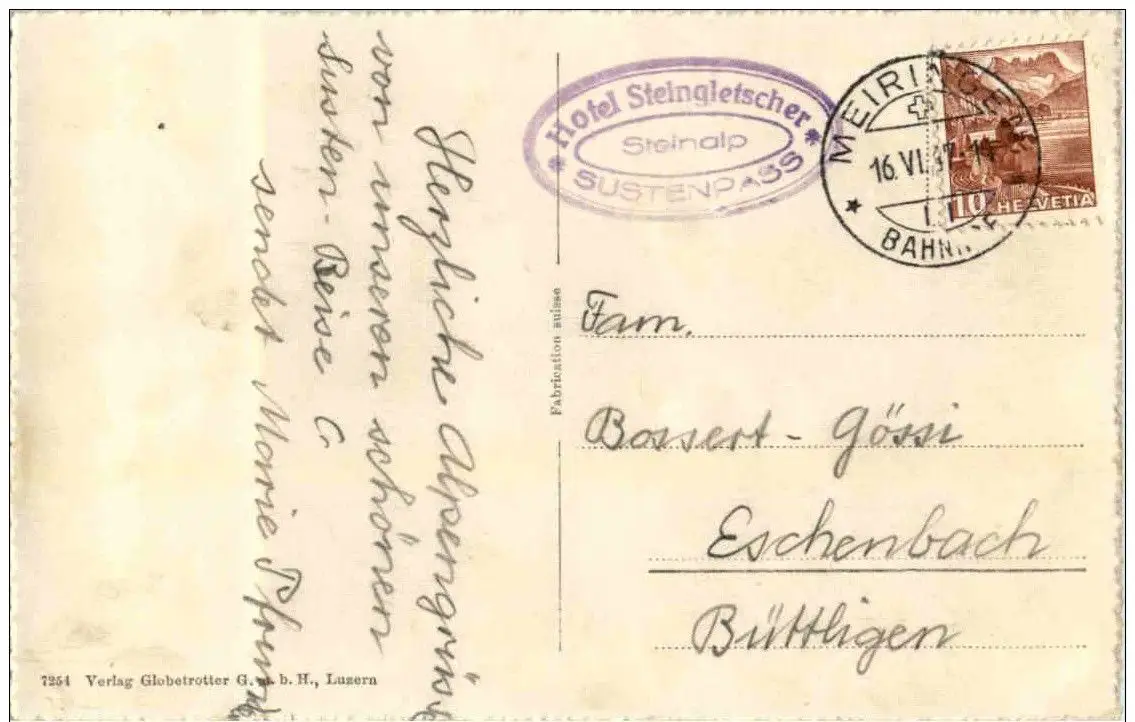 Herzliche Alpengrüss
von unseren schönen
Susten-Reise
sendet Marie
7254 Verlag Globetrotter G. m. b. H., Luzern
Fabrication suisse
Hotel Steingletscher
Steinalp
SUSTENPASS
MEIRINGEN
16.VI.
BAHNH
10 HELVETIA
Fam.
Bossert - Gössi
Eschenbach
Büttligen